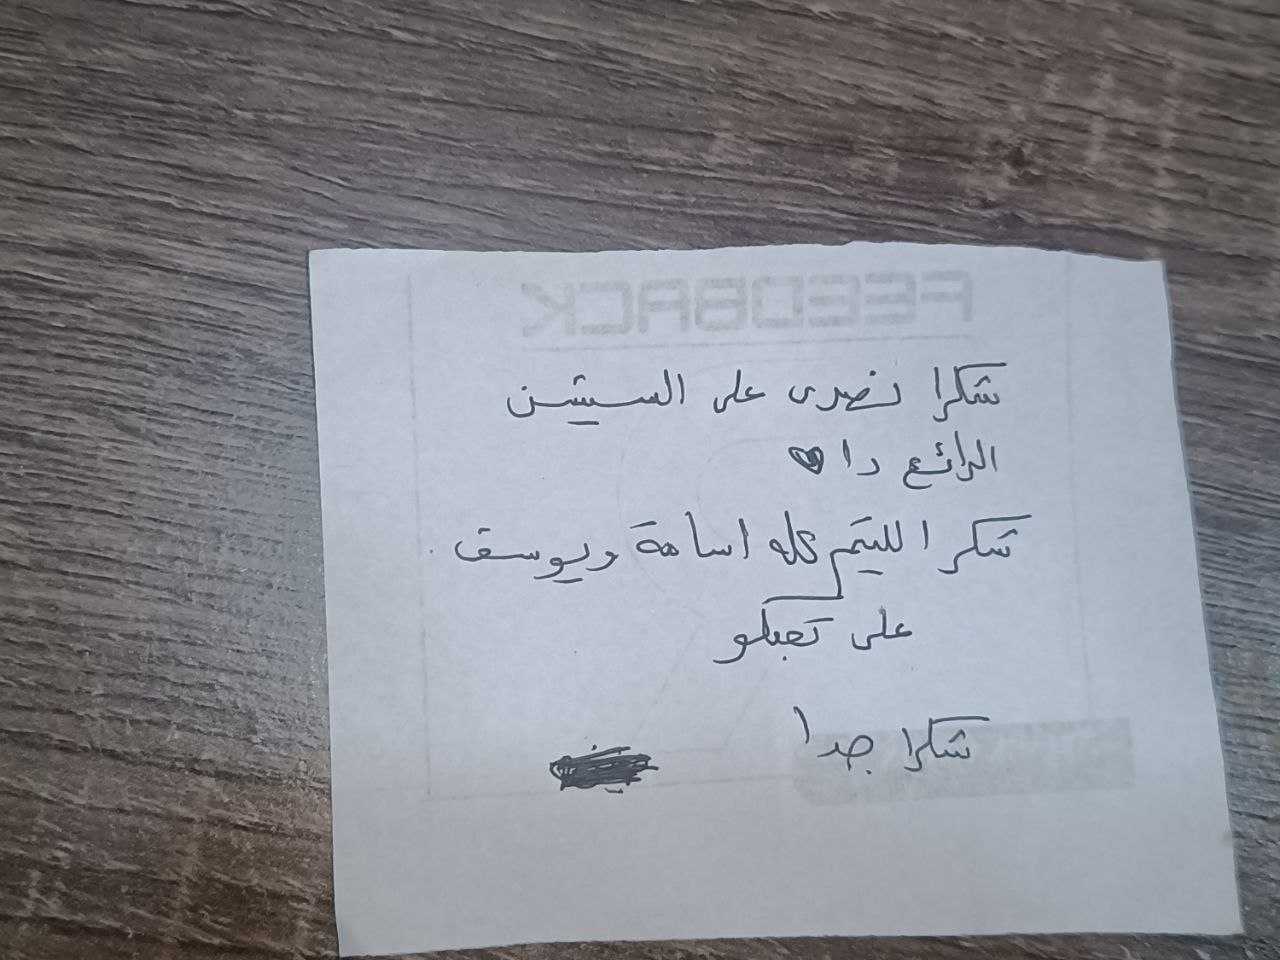 FEEDBACK
شكرا نصرى على السيشن
الرائع دا
شكرا للتيم كله اسامة ويوسف
على تعبكو
شكرا جدا